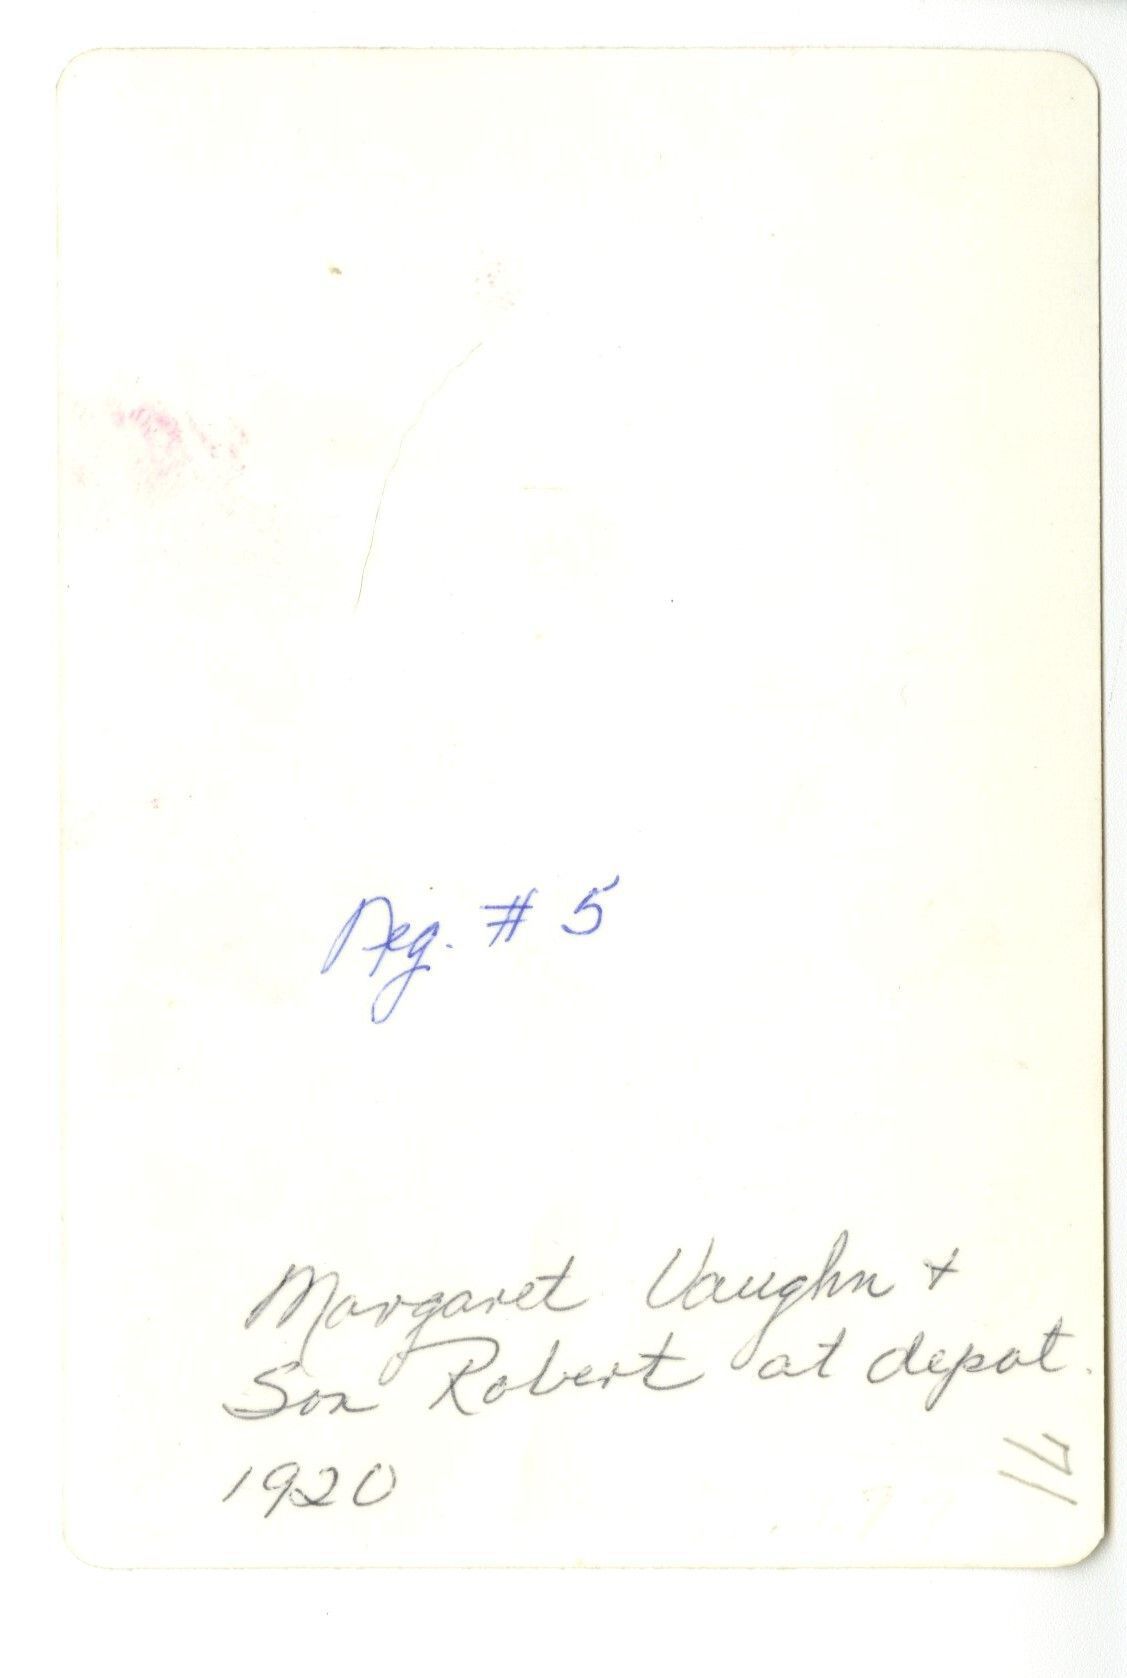 Neg. # 5
Margaret Vaughn +
Son Robert at depot.
1920